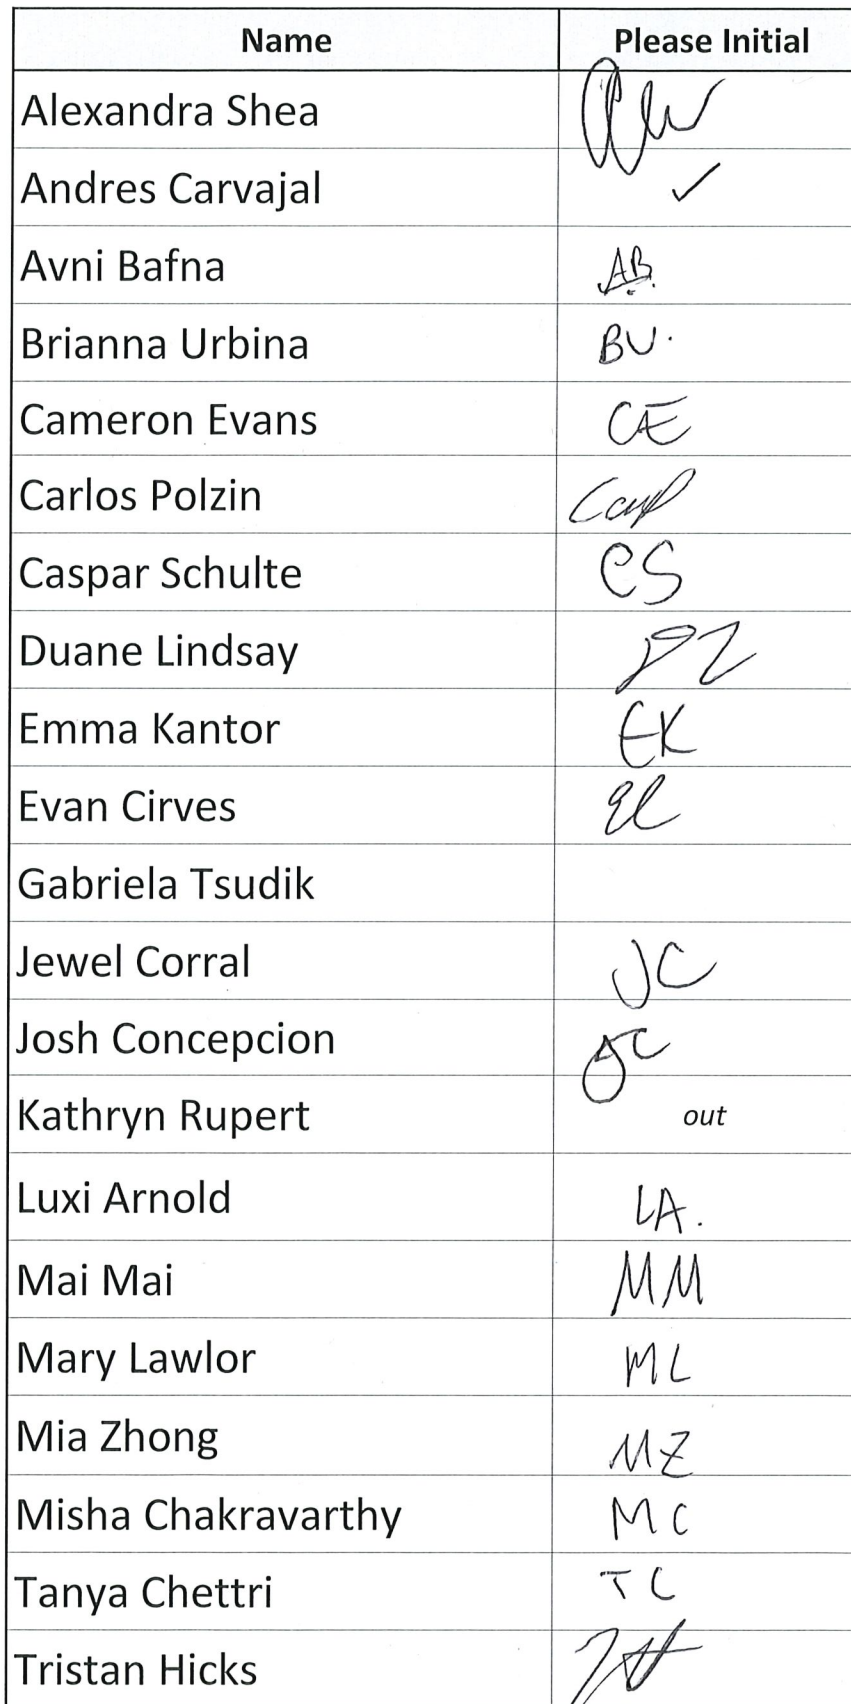 Name Please Initial
Alexandra Shea
Andres Carvajal ✓
Avni Bafna AB
Brianna Urbina BU.
Cameron Evans CE
Carlos Polzin
Caspar Schulte CS
Duane Lindsay
Emma Kantor EK
Evan Cirves EC
Gabriela Tsudik
Jewel Corral JC
Josh Concepcion JC
Kathryn Rupert out
Luxi Arnold LA.
Mai Mai MM
Mary Lawlor ML
Mia Zhong MZ
Misha Chakravarthy MC
Tanya Chettri TC
Tristan Hicks